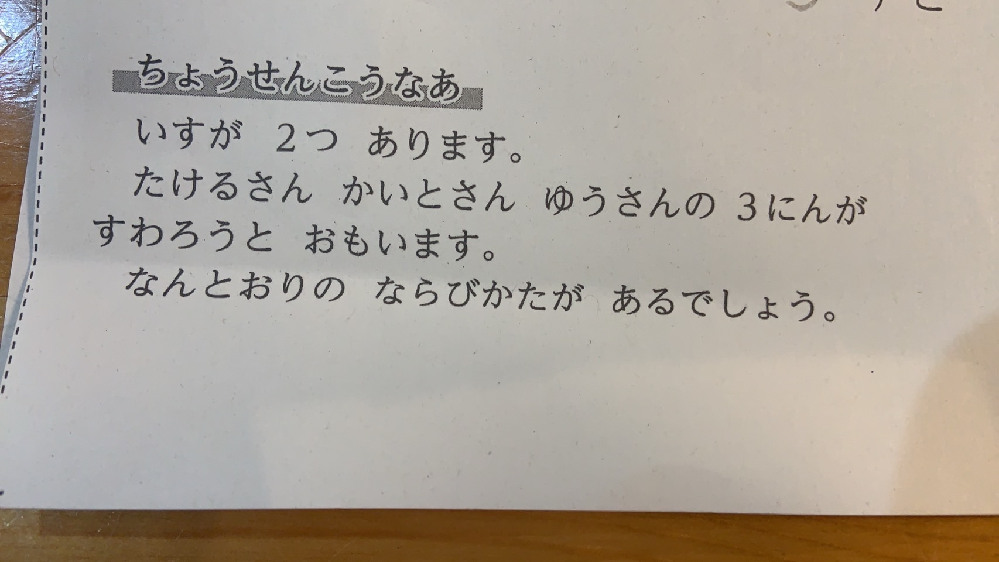 ちょうせんこうなあ
いすが 2つ あります。
たけるさん かいとさん ゆうさんの 3にんが
すわろうと おもいます。
なんとおりの ならびかたが あるでしょう。